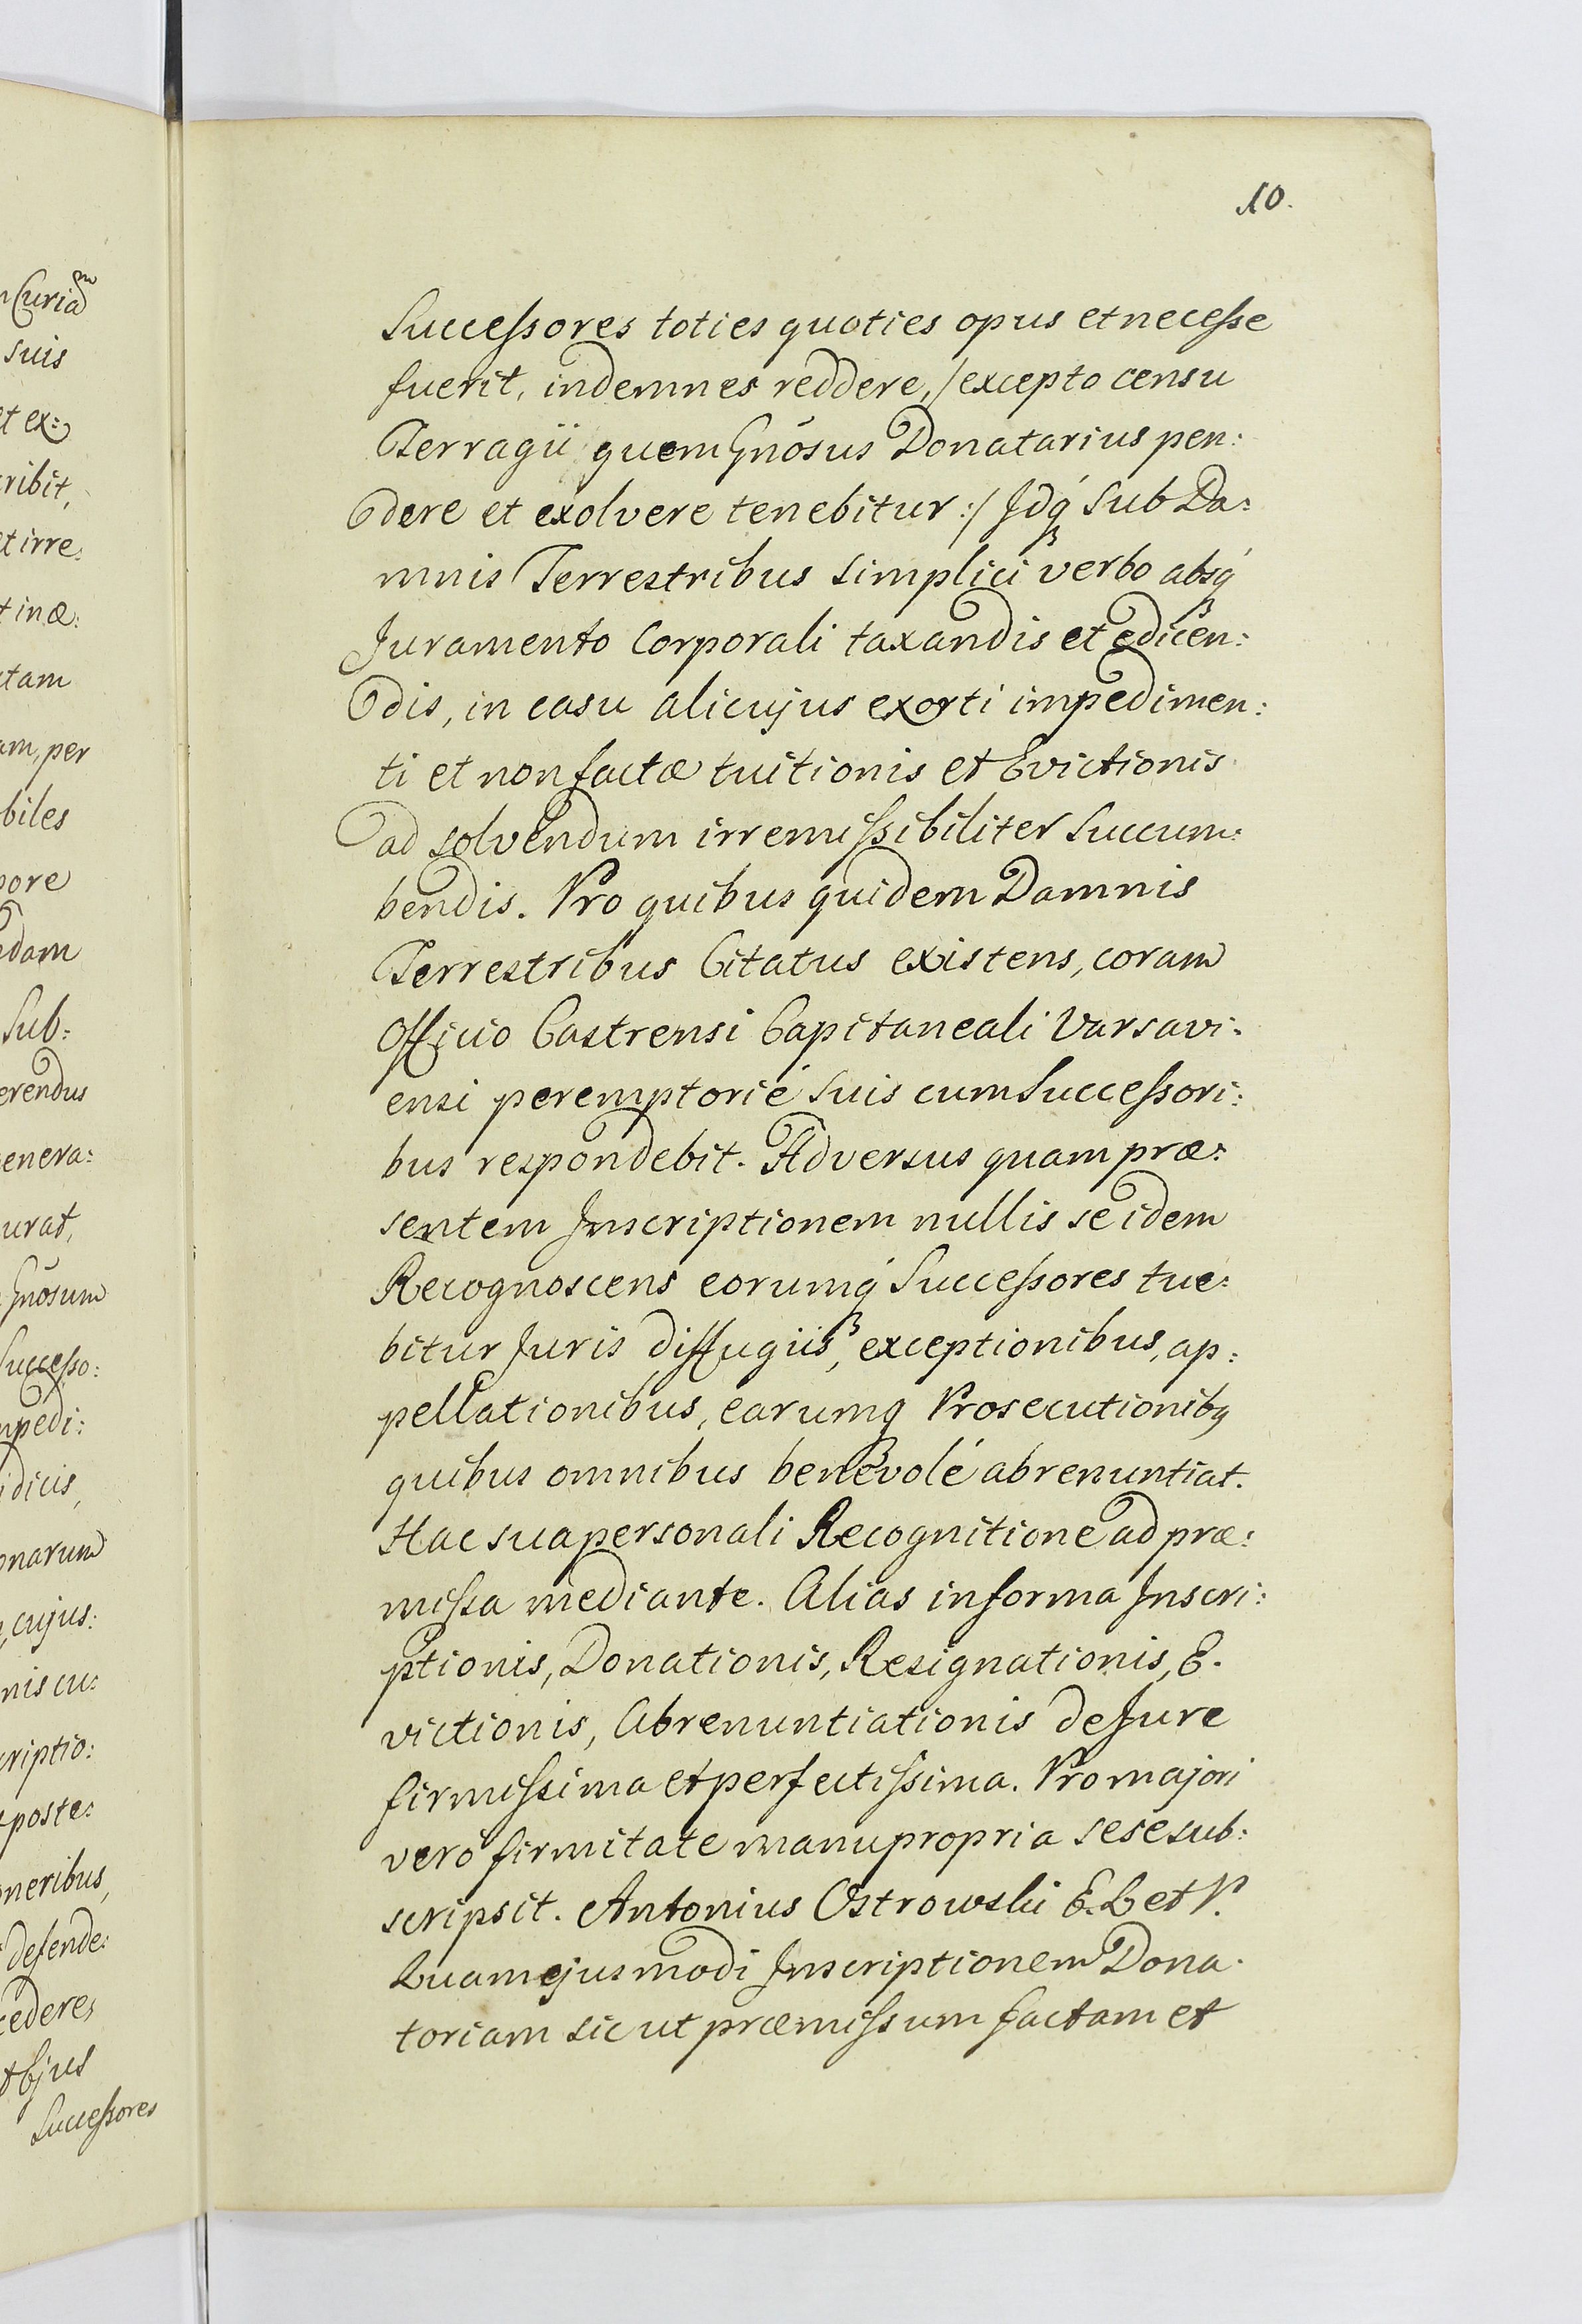 n Curiam
suis
et ex:
ribit,
et irre:
t inæ:
tam
am, per
biles
pore
edam
Sub:
erendus
enera:
urat,
Gnõsum
Successo:
mpedi:
idicis,
onarum
cujus:
nis cu:
criptio:
poste:
oneribus,
defende:
cedere,
t Ejus
Successores
10.
Successores toties quoties opus et necesse
fuerit, indemnes reddere, /excepto censu
Terragii quem Gnõsus Donatarius pen:
dere et exolvere tenebitur:/ Idq́ Sub Da:
mnis Terrestribus simplici verbo absq́
Juramento Corporali taxandis et edicen:
dis, in casu alicujus exorti impedimen:
ti et non factæ tuitionis et Evictionis
ad solvendum irremissibiliter Succum:
bendis. Pro quibus quidem Damnis
Terrestribus Citatus existens, coram
Officio Castrensi Capitaneali Varsavi:
ensi peremptorié Suis cum Successori:
bus respondebit. Adversus quam præ:
sentem Inscriptionem nullis se idem
Recognoscens eorumq́ Successores tue:
bitur Juris diffugiis, exceptionibus, ap:
pellationibus, earumq Prosecutionibq
quibus omnibus benevolé abrenuntiat.
Hac sua personali Recognitione ad præ:
missa mediante. Alias in forma Inscri:
ptionis, Donationis, Resignationis, E.
victionis, Abrenuntiationis de Jure
firmissima et perfectissima. Pro majori
veró firmitate manu propria sese sub:
scripsit. Antonius Ostrowski E. C et P.
Quam ejusmodi Inscriptionem Dona.
toriam sic ut præmissum factam et